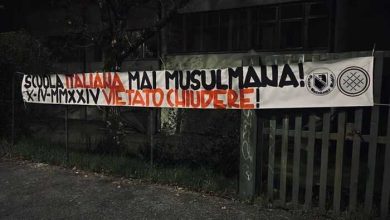 SCUOLA ITALIANA MAI MUSULMANA!
X-IV-MMXXIV VIETATO CHIUDERE!